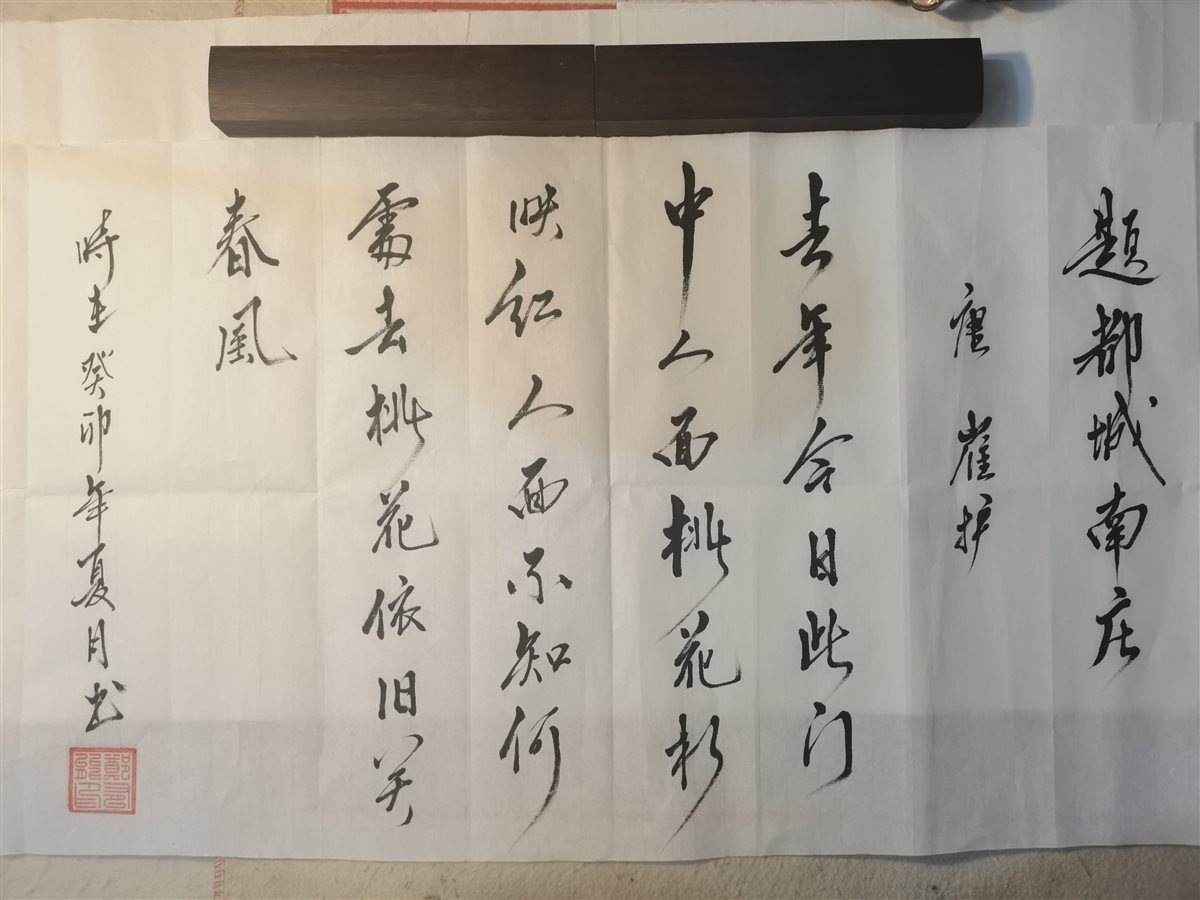 题都城南庄
唐 崔护
去年今日此门
中人面桃花相
映红人面不知何
處去桃花依旧笑
春風
時在癸卯年夏月书